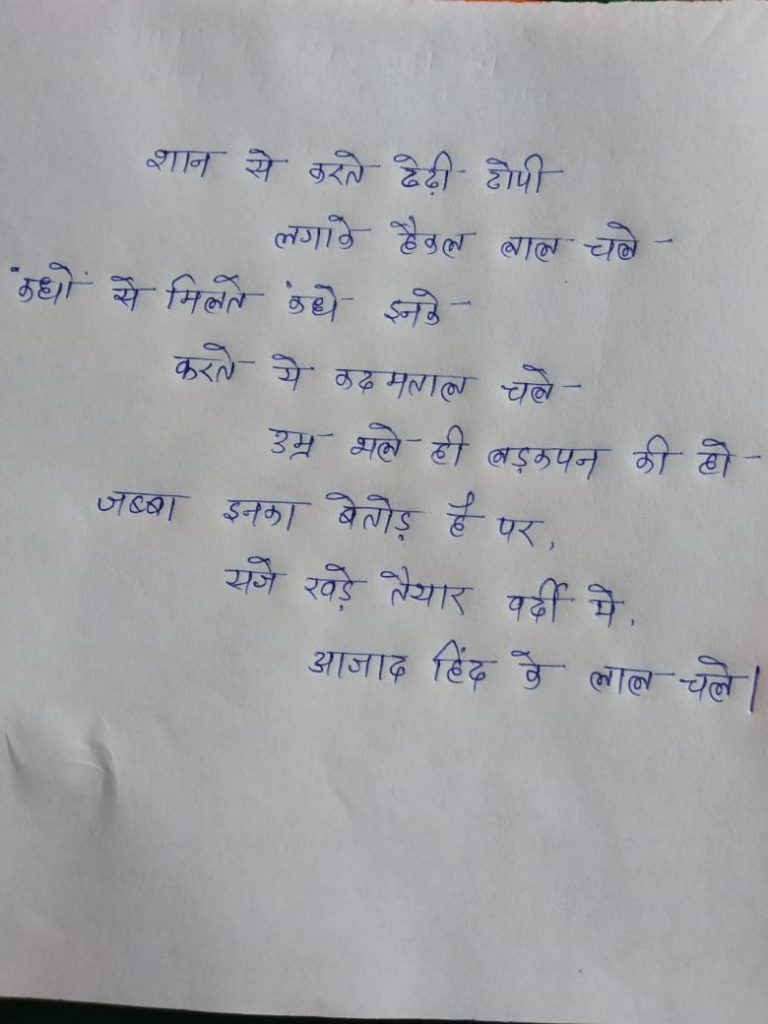 शान से करते टेढ़ी टोपी
लगाके हैकल लाल चले -
कंधों से मिलते कंधे इनके -
करते ये कदमताल चले -
उम्र भले ही लड़कपन की हो -
जज्बा इनका बेतोड़ है पर,
सजे खड़े तैयार वर्दी में,
आजाद हिंद के लाल चले।